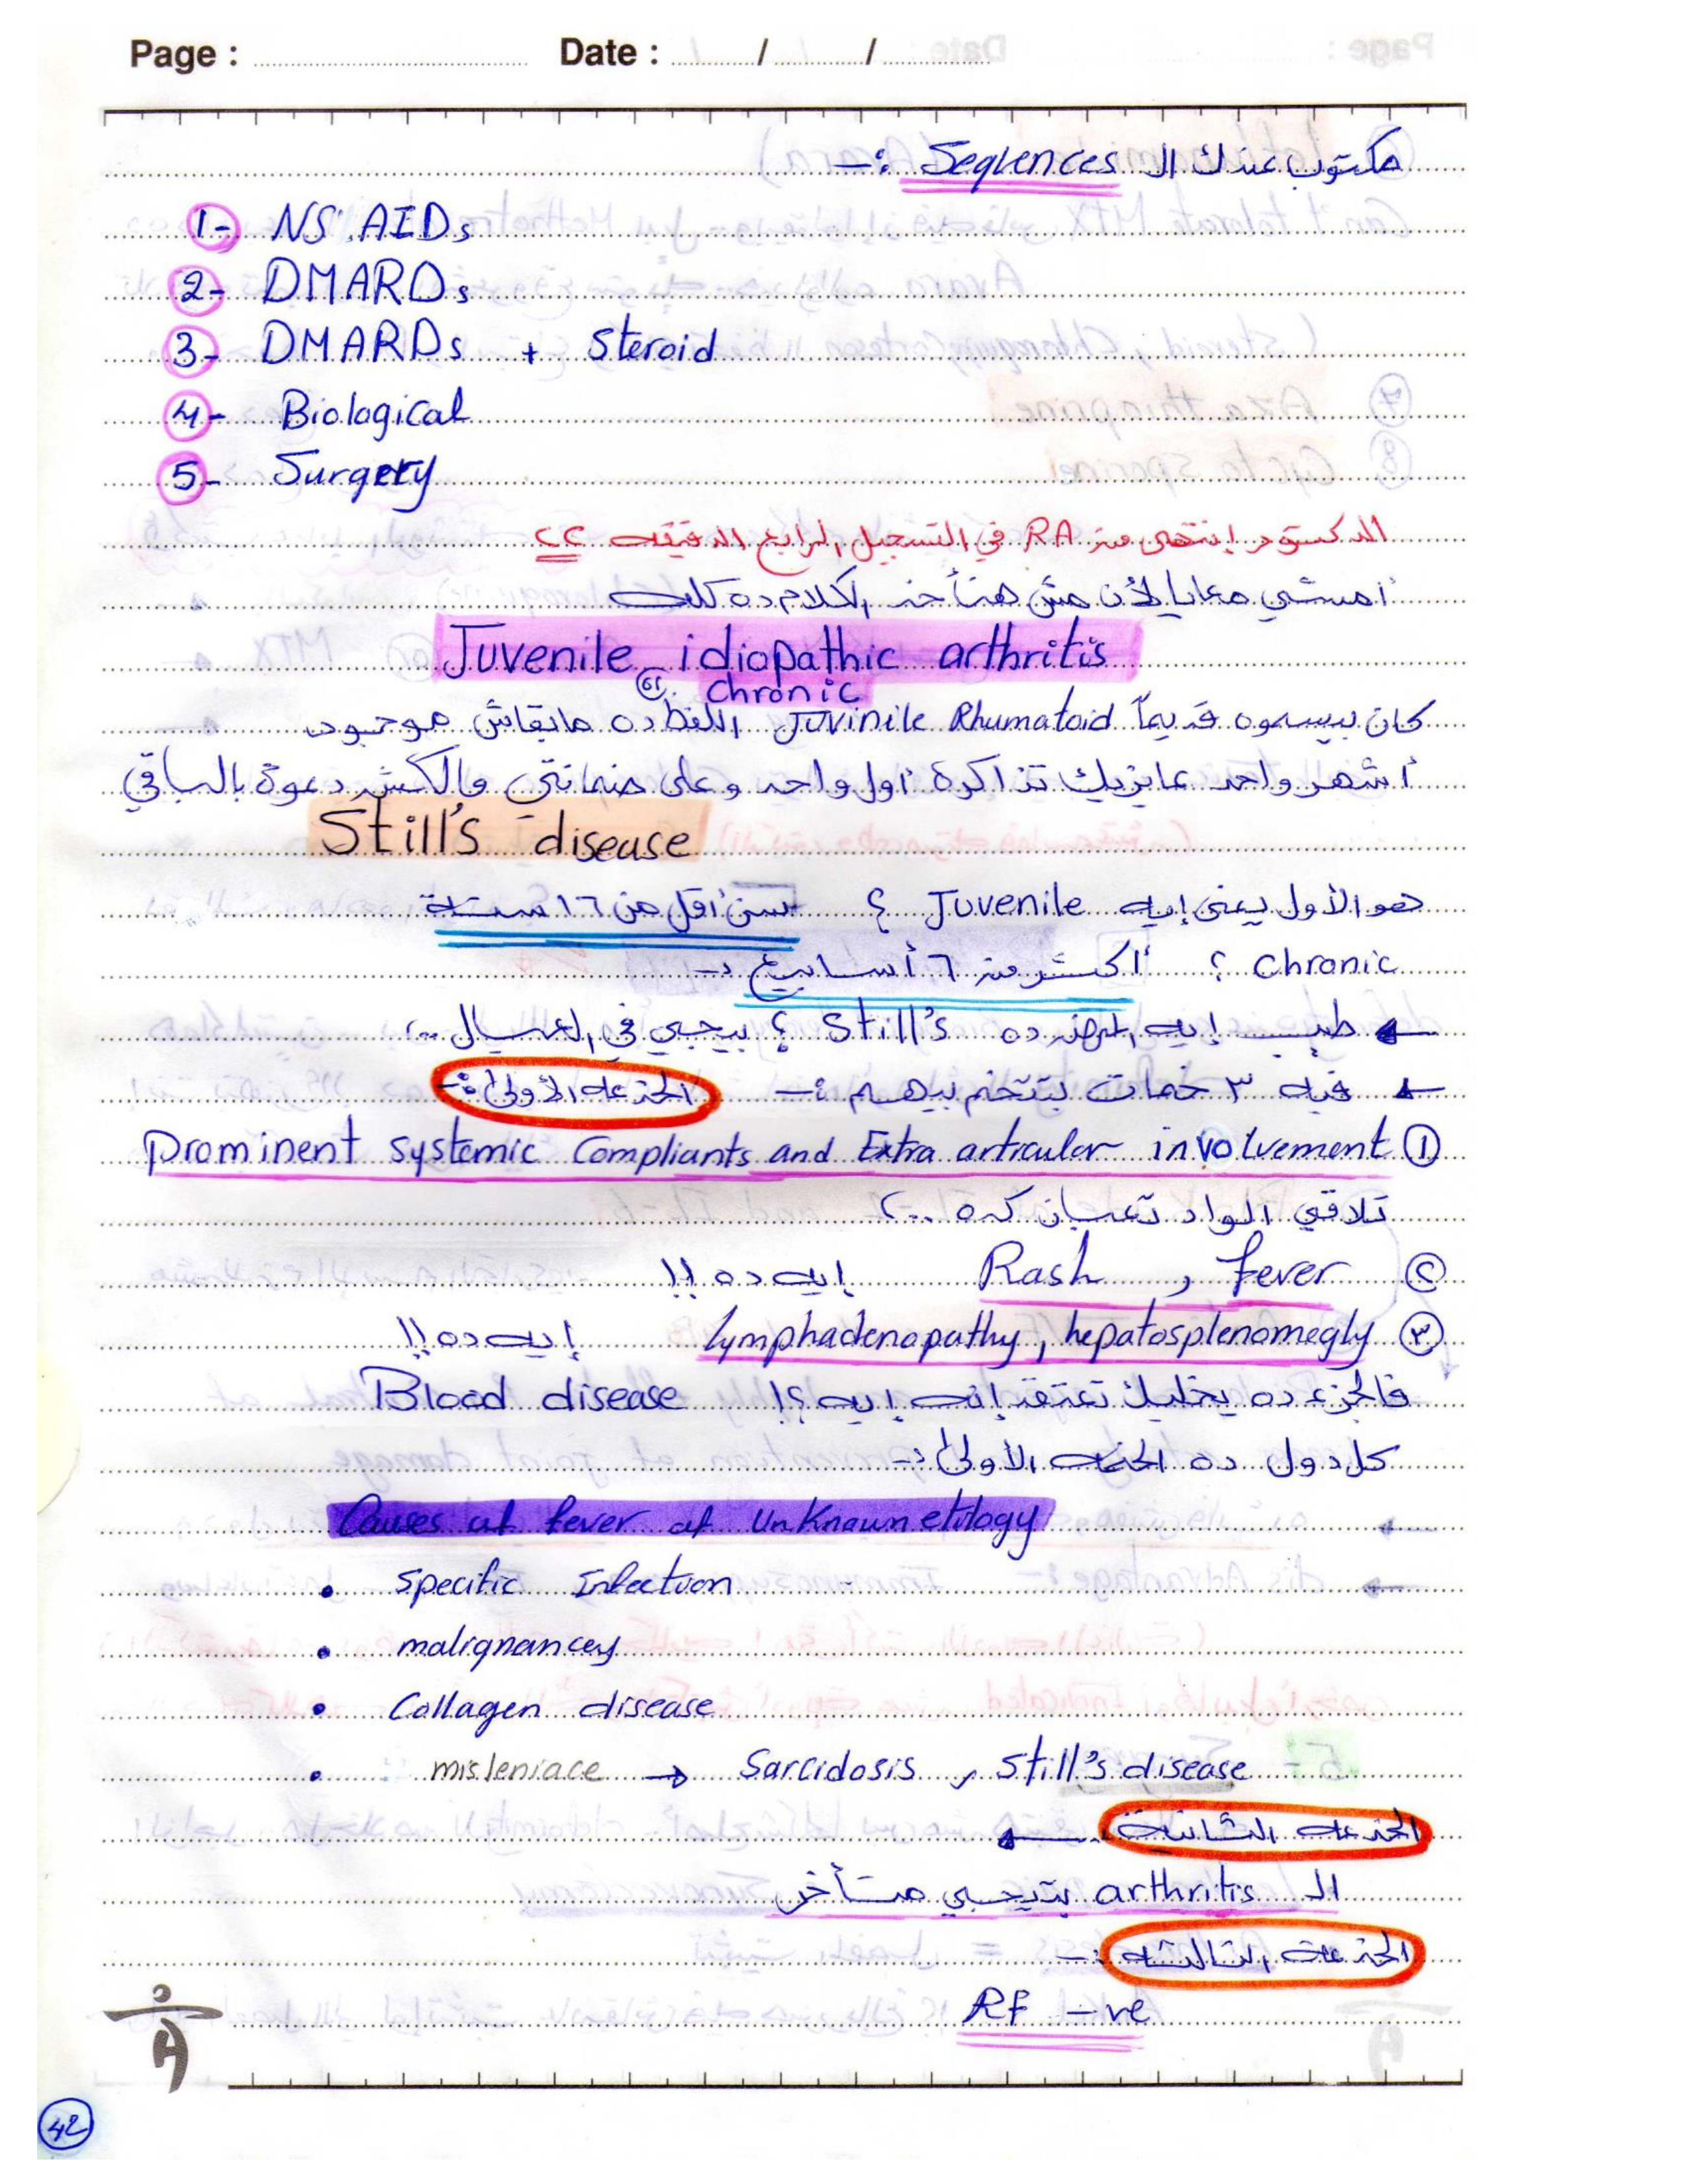 Page : Date : / /
مكتوب عندك ال Sequences :-
1- NSAIDs
2- DMARDs
3- DMARDs + Steroid
4- Biological
5- Surgery
الدكتور إنتهى من RA في التسجيل الرابع الدقيقه ٢٢
أمشي معايا لأن مش هنأخد الكلام ده كله
Juvenile idiopathic arthritis
or chronic
كان بيسموه قديماً Juvinile Rhumatoid اللفظ ده مابقاش موجود
أشهر واحد عايزك تذاكره أول واحد وعلى ضمانتي والكش دعوة بالباقي
Still's disease
هو الأول يعني إيه Juvenile ؟ سن أقل من ١٦ سنة
Chronic ؟ أكثر من ٦ أسابيع :-
طيب إيه المرض ده Still's ؟ بيجي في العيال ..
فيه ٣ خدمات بتتخدم بيهم :- الخدعه الأولى :-
① Prominent systemic Compliants and Extra articular involvement
تلاقي الواد تعبان كده ..
② Fever , Rash إيه ده !!
③ lymphadenopathy, hepatosplenomegly إيه ده !!
فالجزء ده يخليك تعتقد إنه إيه ؟! Blood disease
كل دول ده الخدعه الأولى :-
Causes of fever of UnKnown etilogy
• Specific Infection
• malignancy
• Collagen disease
• misleniace → Sarcidosis , Still's disease
الخدعه الثانية
ال arthritis بتيجي متأخر
الخدعه الثالثه :-
RF -ve
42